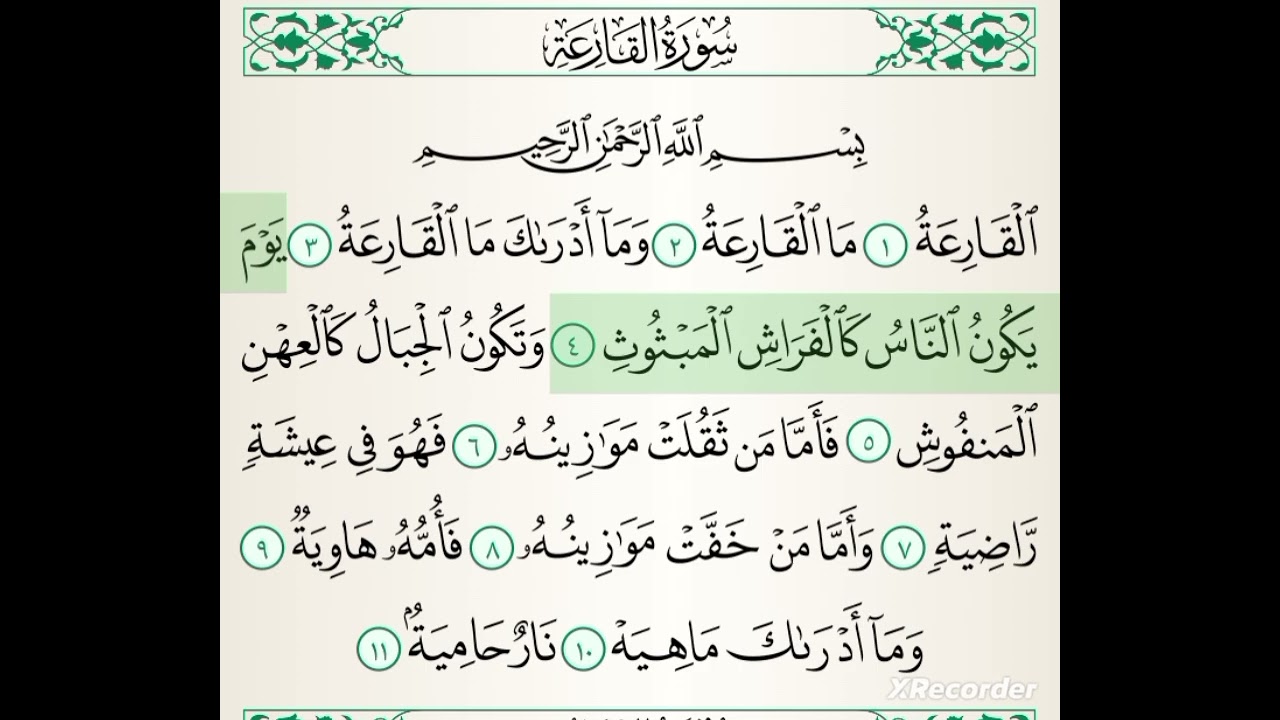 سُورَةُ القَارِعَةِ
بِسْمِ ٱللَّهِ ٱلرَّحْمَٰنِ ٱلرَّحِيمِ
ٱلْقَارِعَةُ ١ مَا ٱلْقَارِعَةُ ٢ وَمَآ أَدْرَىٰكَ مَا ٱلْقَارِعَةُ ٣ يَوْمَ
يَكُونُ ٱلنَّاسُ كَٱلْفَرَاشِ ٱلْمَبْثُوثِ ٤ وَتَكُونُ ٱلْجِبَالُ كَٱلْعِهْنِ
ٱلْمَنفُوشِ ٥ فَأَمَّا مَن ثَقُلَتْ مَوَٰزِينُهُۥ ٦ فَهُوَ فِي عِيشَةٍ
رَّاضِيَةٍ ٧ وَأَمَّا مَنْ خَفَّتْ مَوَٰزِينُهُۥ ٨ فَأُمُّهُۥ هَاوِيَةٌ ٩
وَمَآ أَدْرَىٰكَ مَا هِيَهْ ١٠ نَارٌ حَامِيَةٌۢ ١١
XRecorder